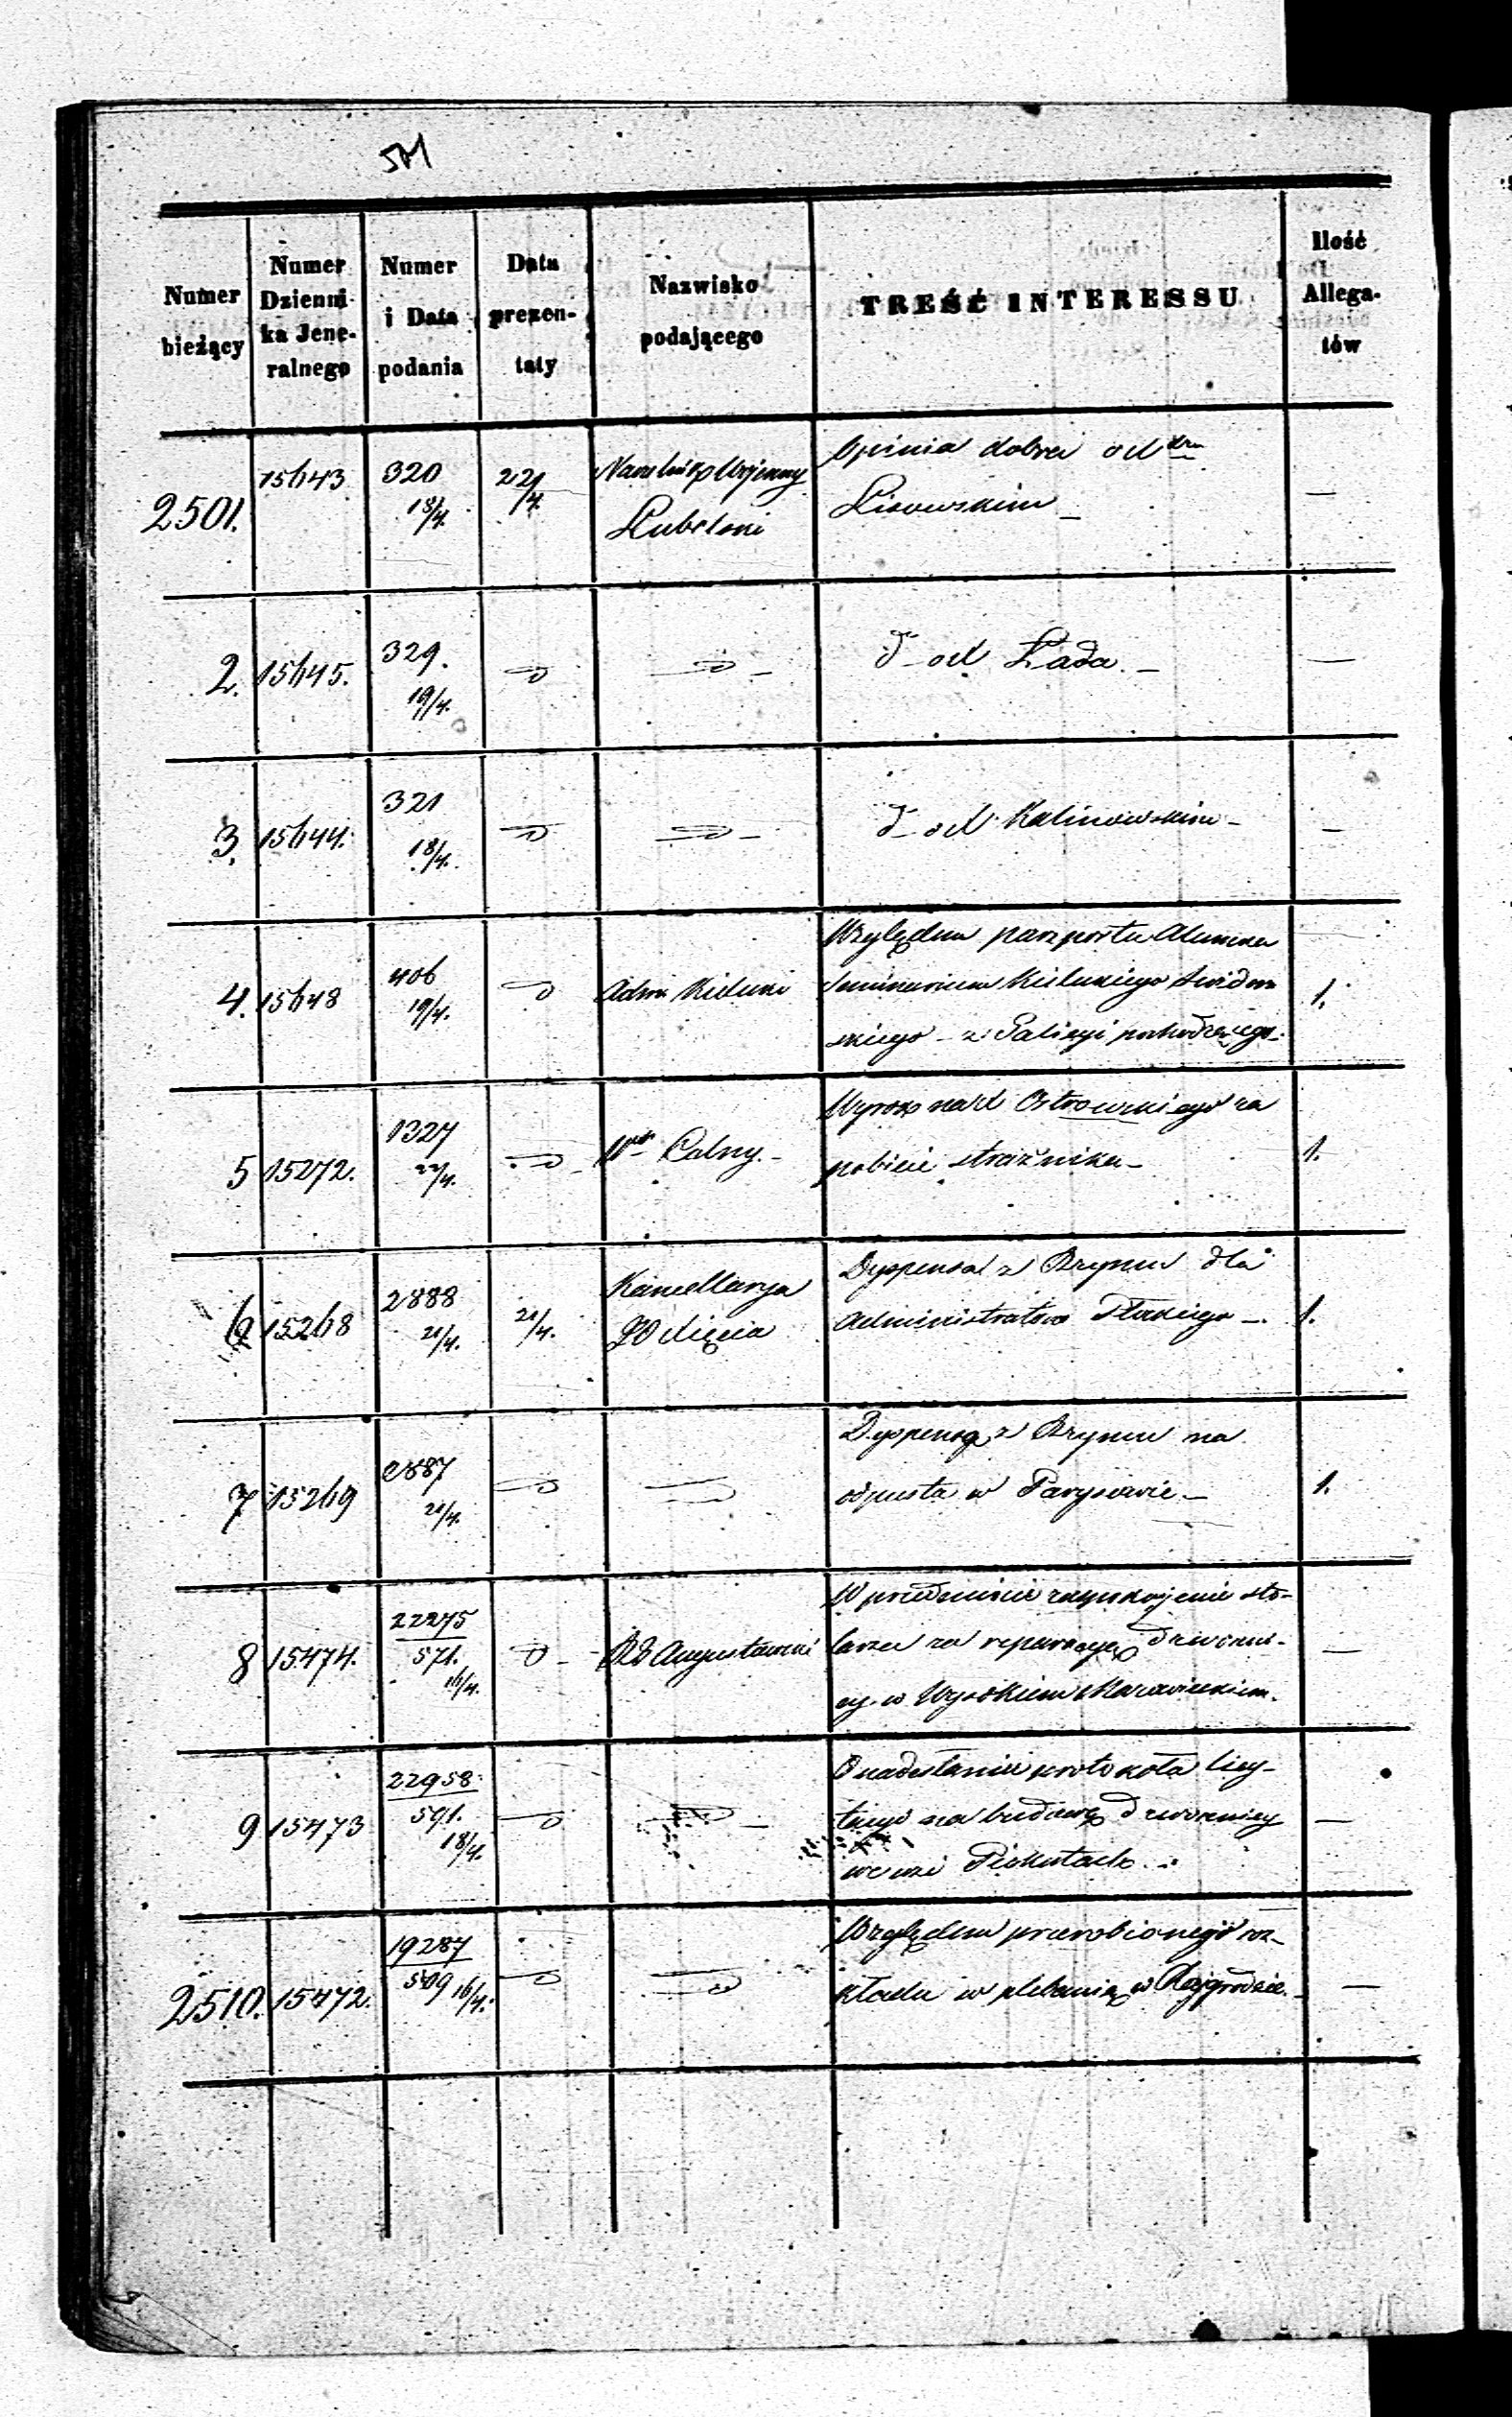 501
Numer bieżący
Numer Dzienni-ka Jene-ralnego
Numer i Data podania
Data prezen-taty
Nazwisko podającego
TREŚĆ INTERESSU
Ilość Allega-tów
2501. 15643 320 18/4. 22/4. Naczelnik Wojenny Lubelski
Opinia dobra o x
Lisowskim —
2. 15645. 329. 19/4.
d° — o x Łada. —
3. 15644. 321 18/4.
d° — o x Kalinowskim —
4. 15648 406 19/4. Adm. Kielecki 1.
Względem paszportu Alumna
Seminarium Kieleckiego
skiego — z Galicyi pochodzącego.
5 15272. 1327 22/4. Calny. — 1.
Wyrok nad Ostrowskiego za
pobicie strażnika —
6 15268 2888 21/4. 21/4. Kancellarya JO Xięcia 1.
Dyspensa z Rzymu dla
Administratora Płockiego —.
7 15269 2887 21/4. 1.
Dyspensa z Rzymu na
odpusta w Parysowie —
8 15474. 22275 571. 16/4. RG Augustowski —
W przedmiocie zaspokojenia sto-
larza za reparacyę dzwonni-
cy w Wysokiem Mazowieckiem.
9 15473 22958 591. 18/4. —
O nadesłanie protokołu licy-
tacyi na budowę dzwonnicy
we wsi Piekutach.
2510. 15472. 19287 509 16/4. —
Względem przerobionego roz-
kładu w plebanią w Rajgrodzie.